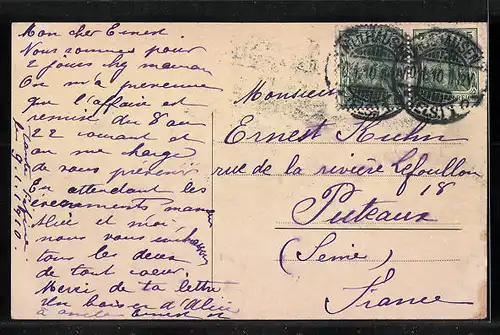 Mon cher Ernest.
Nous sommes pour
2 jours chez maman
On m'a prévenue
que l'affaire est
remise du 8 au
22 courant et
on me charge
de vous prévenir
En attendant les
évènements maman
Alice et moi,
nous vous embrassons
tous les deux
de tout coeur.
Merci de ta lettre
Un baiser d'Alice
à Ernest et
9.1.1910.
Monsieur
Ernest Kuhn
rue de la rivière Lefoullon
18
Puteaux
(Seine)
France